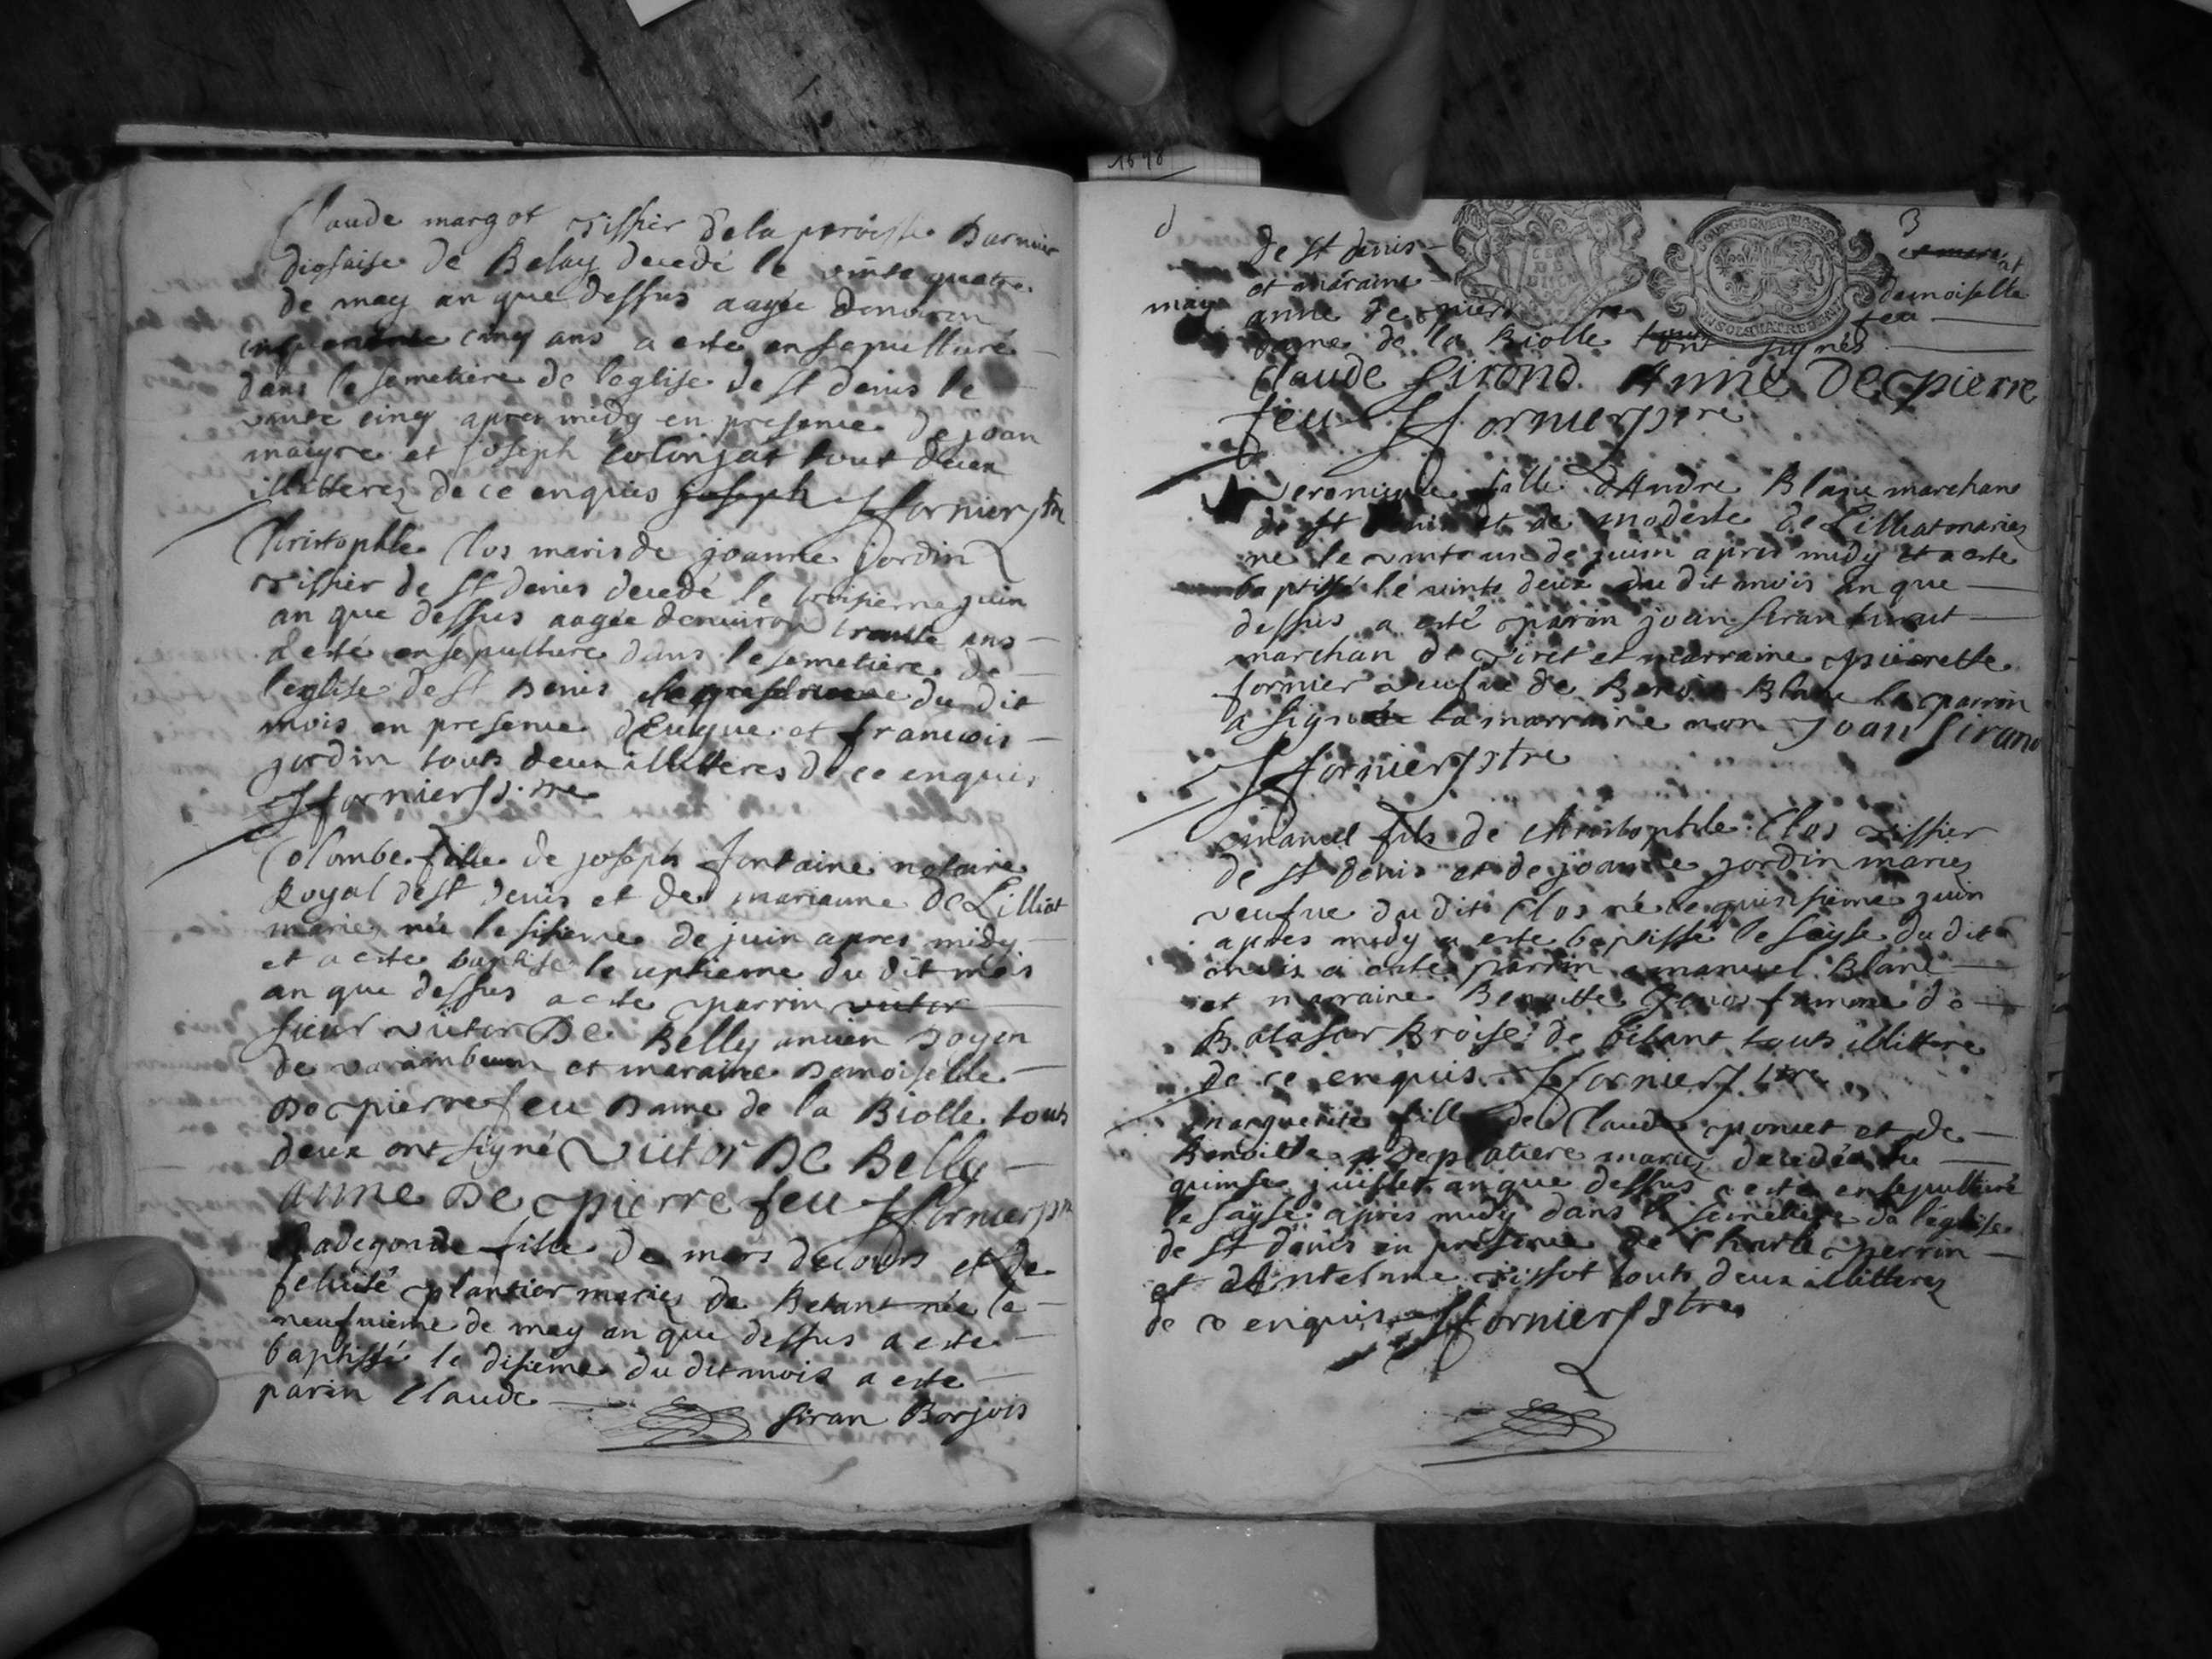 Claude margot tissier de la paroisse Darnier
diosaise de Belay decedé le vinte quatre
de may an que dessus aagée denviron
cinquante cinq ans a esté ensepulturé
dans le semetiere de l'eglise de st denis le
vinte cinq apres midy en presence de joan
maigre et joseph colonjat tout deux
illitterez de ce enquis joseph fornier ptre
Christophle Clos maris de joanne jordin
tissier de st denis decedé le troisieme juin
an que dessus aagée denviron trante ans
a esté ensepulture dans le semetiere de
l'eglise de st Denis du dit
mois en presence d'Eugue et francois
jordin touts deux illitteres de ce enquis
fornier ptre
Colombe fille de joseph fontaine notaire
Royal de st Denis et de marianne De Lilliat
mariez née le sisieme de juin apres midy
et a esté baptisé le septieme du dit mois
an que dessus a esté parrin victor
sieur victor De Belly ancien Doyen
de varambeum et maraine Demoiselle
De pierre feu Dame de la Biolle touts
deux ont signé Victor De Belly
anne De pierre feu fornier ptre
Radegonde fille de mars decours et de
felicité plantier mariez de Betant née le
neufvieme de may an que dessus a esté
baptissé le disieme du dit mois a esté
parin Claude
siran Borjois
1698
3
de st denis
et mere et
et maraine demoiselle
may
anne de pierre feu
dame de la Biolle tont signés
Claude Sirand Anne De pierre
feu fornier ptre
Veronique fille d'Andre Blanc marchan
de st Denis et de modeste de Lilliat mariez
né le vinte un de juin apres midy et a esté
baptissé le vinte deux du dit mois an que
dessus a esté parin joan siran
marchan de et marraine pierrette
fornier veufve de Benoi Blanc le parrin
a signé la marraine non Joan Sirand
fornier ptre
Emanuel fils de christophle Clos tissier
de st Denis et de joanne jordin mariez
veufve du dit Clos né le quinsieme juin
apres midy a esté baptissé le sayse du dit
mois a esté parrin emanuel Blanc
et marraine Benoitte Genos famme de
Batasar Broise de touts illittere
de ce enquis fornier ptre
marguerite fille de Claude poncet et de
Benoitte De platiere mariez decedée le
quinse juillet an que dessus a esté ensepulturé
le sayse apres midy dans le semetiere de l'eglise
de st denis en presence de Charle perrin
et d'Antelme tissot touts deux illitterez
de ce enquis fornier ptre